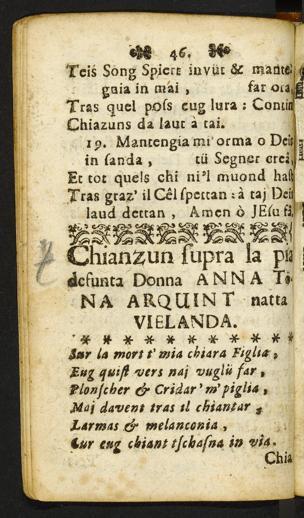 46.
Teis Song Spiert invüt & mante-
guia in mai, far ora,
Tras quel poſs eug lura : Contin
Chiazuns da laut à tai.
19. Mantengia mi orma o Deis
in ſanda, tü Segner creà,
Et tot quels chi ni'l muond haſ
Tras graz' il Cêl ſpettan : à taj Deis
laud dettan, Amen ò JEſu fà,
Chianzun ſupra la pia
defunta Donna ANNA TO-
NA ARQUINT natta
VIELANDA.
Sur la mort t' mia chiara Figlia,
Eug quiſt vers naj vuglü far,
Plonſcher & Cridar' m' piglia,
Maj davent tras il chiantar,
Larmas & melanconia,
Cur eug chiant tſchaſna in via.
Chia